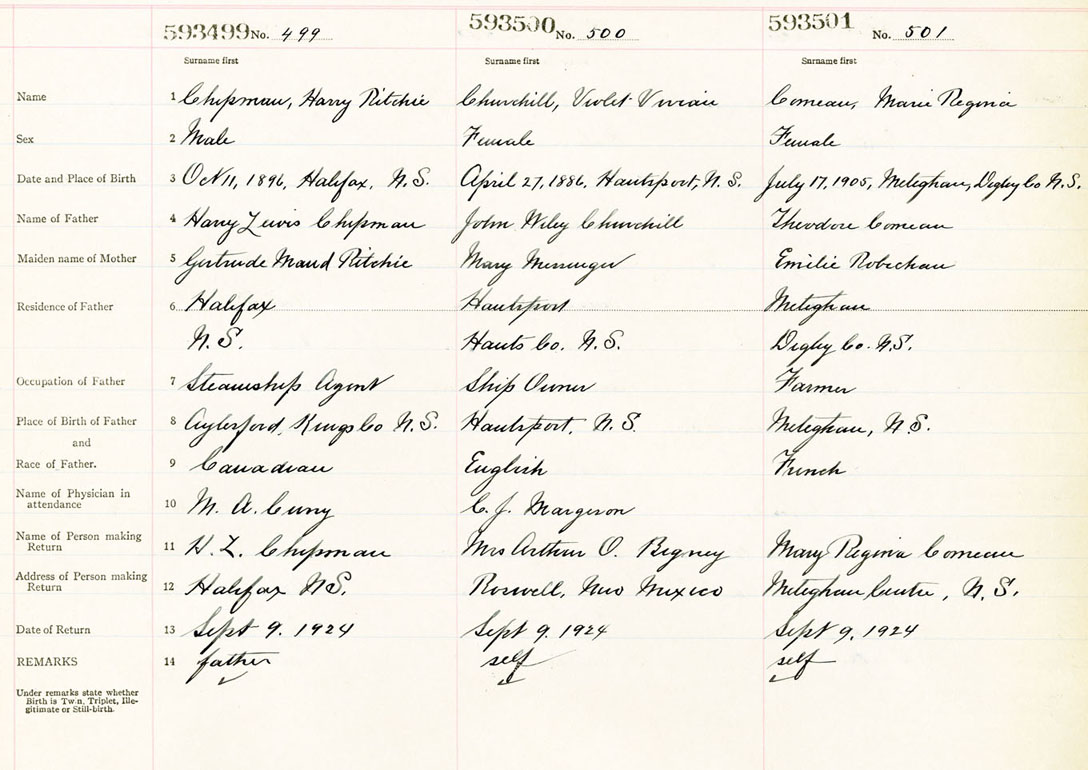 593499 No. 499 593500 No. 500 593501 No. 501
Surname first Surname first Surname first
Name 1 Chipman, Harry Ritchie Churchill, Violet Vivian Comeau, Marie Regina
Sex 2 Male Female Female
Date and Place of Birth 3 Oct 11, 1896, Halifax, N.S. April 27, 1886, Hantsport, N.S. July 17, 1905, Meteghan, Digby Co N.S.
Name of Father 4 Harry Lewis Chipman John Wiley Churchill Theodore Comeau
Maiden name of Mother 5 Gertrude Maud Ritchie Mary Messinger Emilie Robichau
Residence of Father 6 Halifax Hantsport Meteghan
N.S. Hants Co. N.S. Digby Co. N.S.
Occupation of Father 7 Steamship Agent Ship Owner Farmer
Place of Birth of Father 8 Aylesford, Kings Co N.S. Hantsport, N.S. Meteghan, N.S.
and
Race of Father. 9 Canadian English French
Name of Physician in
attendance 10 M. A. Curry C. J. Margeson
Name of Person making
Return 11 H. L. Chipman Mrs Arthur O. Bigney Mary Regina Comeau
Address of Person making
Return 12 Halifax N.S. Roswell, New Mexico Meteghan Centre, N.S.
Date of Return 13 Sept 9. 1924 Sept 9. 1924 Sept 9, 1924
REMARKS 14 father self self
Under remarks state whether
Birth is Twin, Triplet, Ille-
gitimate or Still-birth.